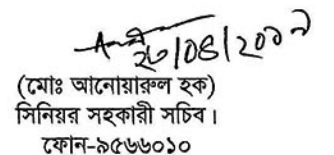 ২৮/০৪/২০০৯
(মোঃ আনোয়ারুল হক)
সিনিয়র সহকারী সচিব।
ফোন-৯৫৬৬০১০